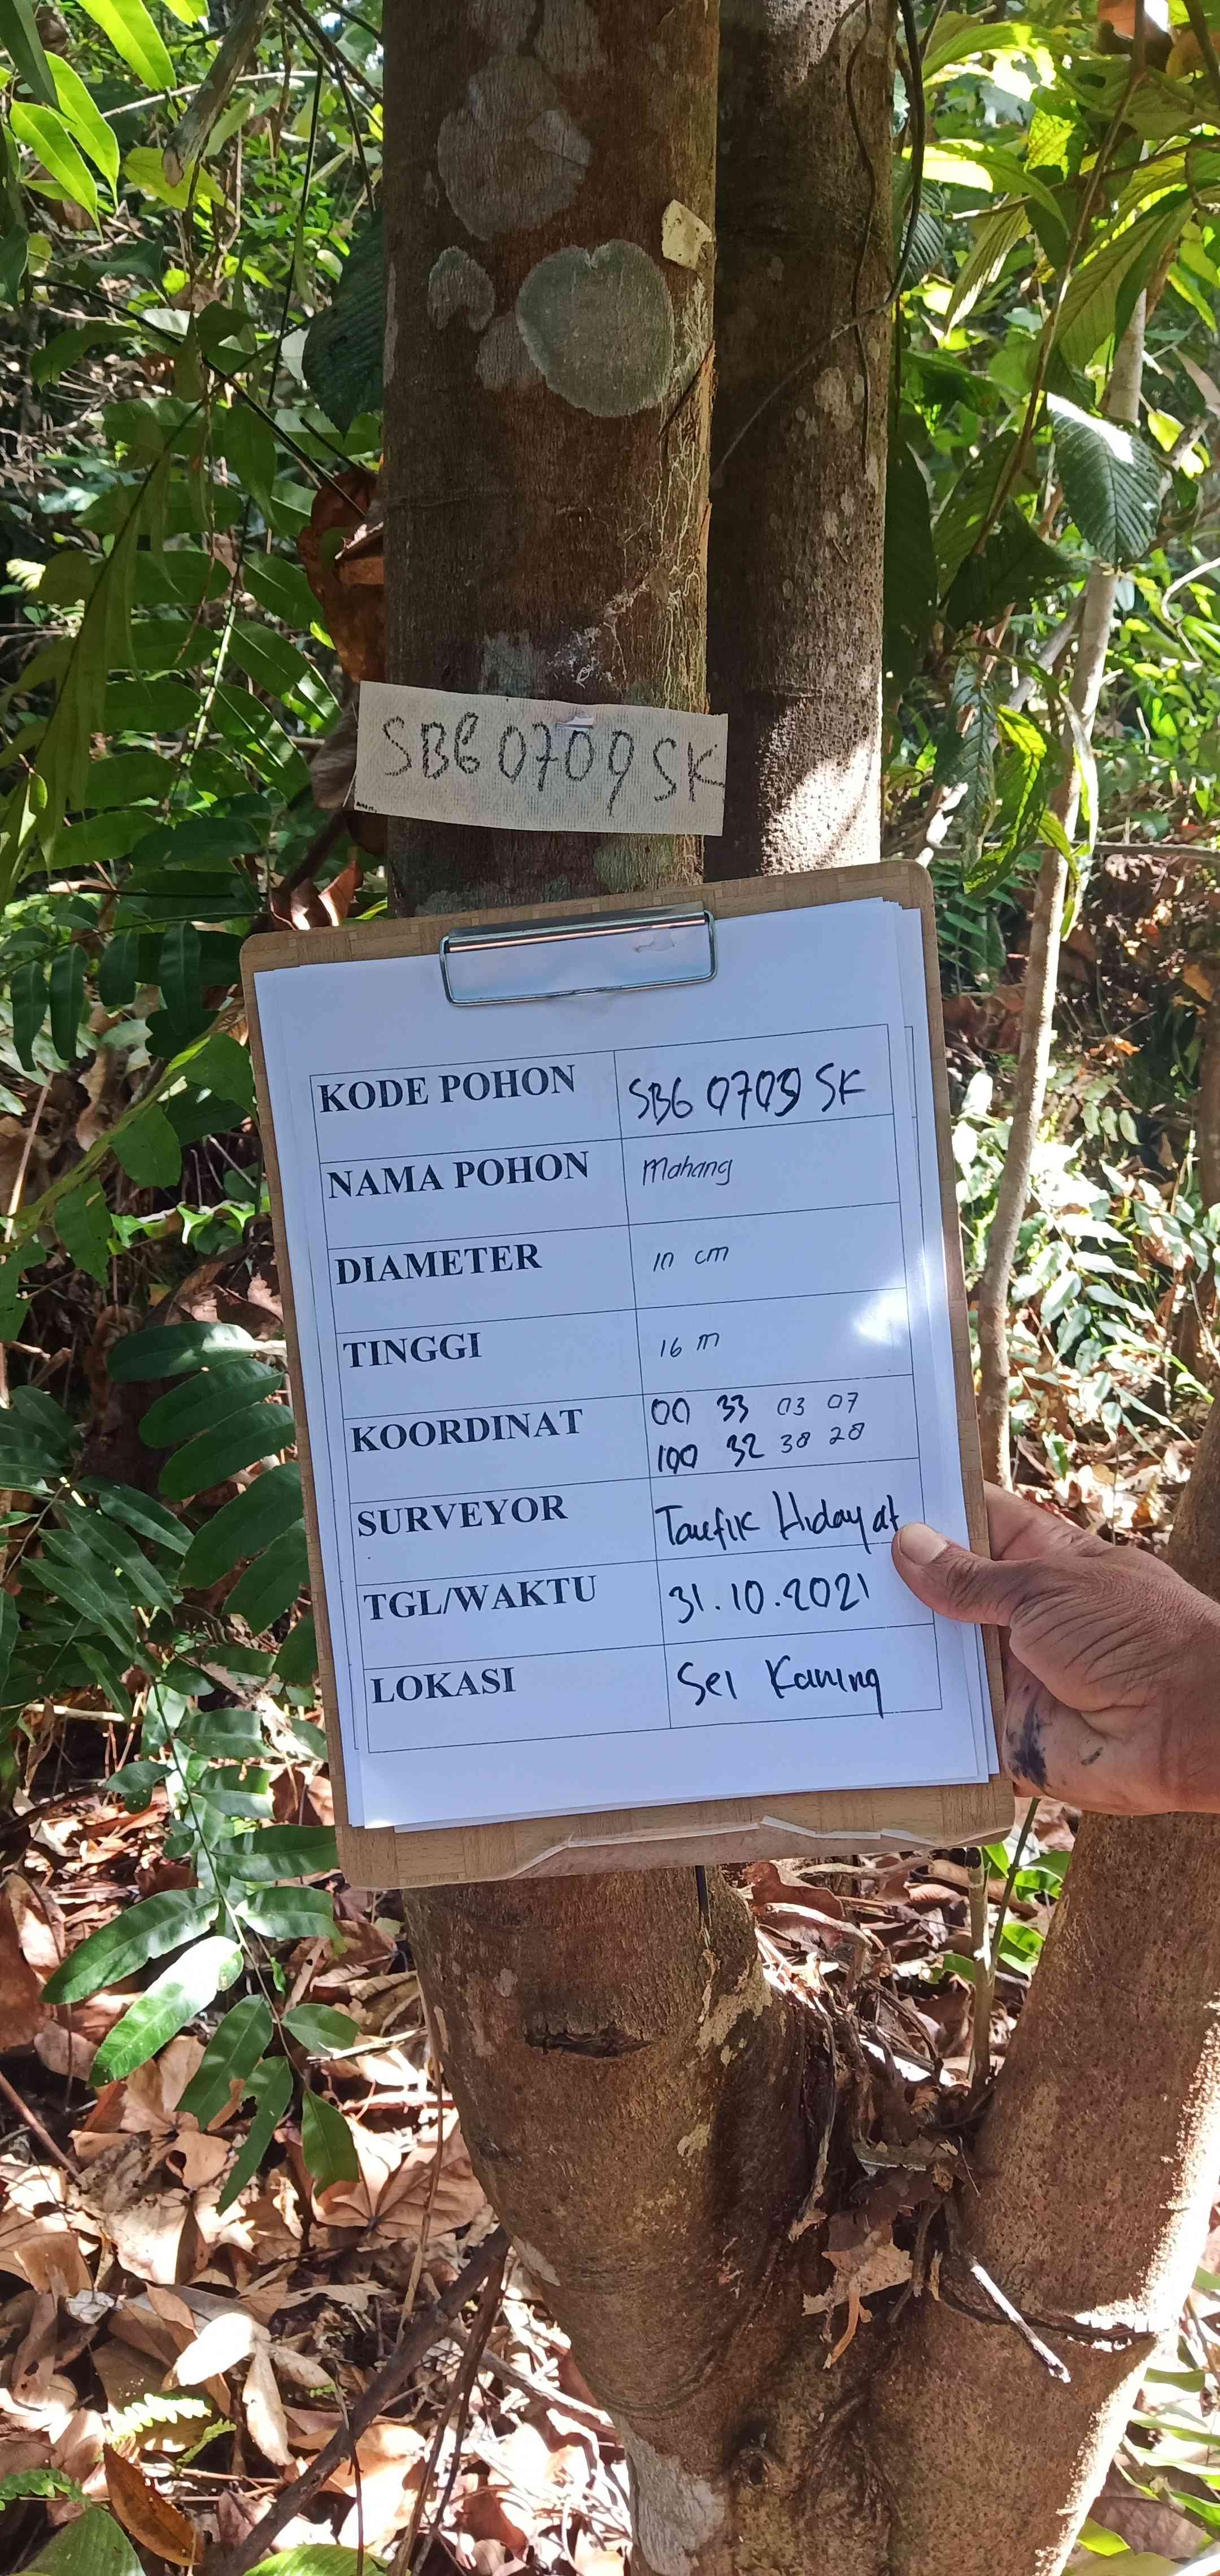 SB6 0709 SK
KODE POHON SB6 0709 SK
NAMA POHON Mahang
DIAMETER 10 cm
TINGGI 16 m
KOORDINAT 00 33 03 07
100 32 38 28
SURVEYOR Taufik Hidayat
TGL/WAKTU 31.10.2021
LOKASI Sei Kaning